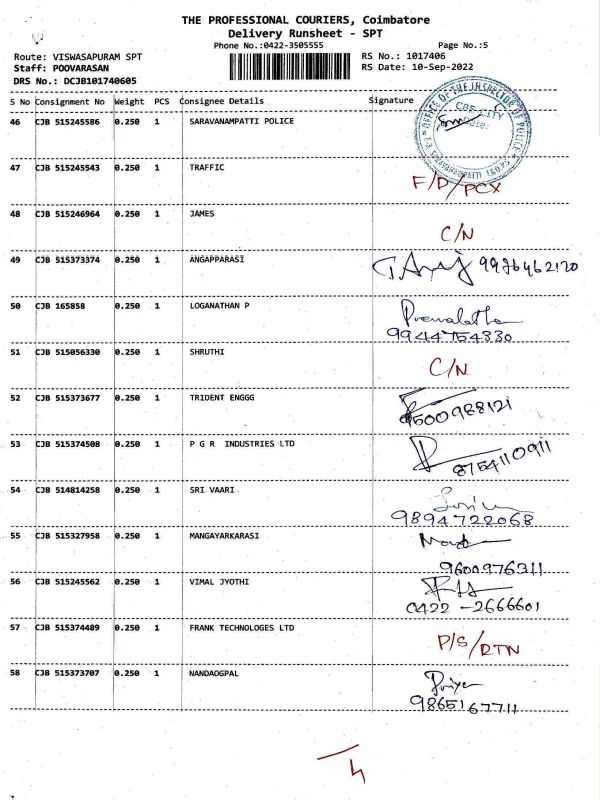 THE PROFESSIONAL COURIERS, Coimbatore
Delivery Runsheet - SPT
Phone No.:0422-3505555 Page No.:5
Route: VISWASAPURAM SPT RS No.: 1017406
Staff: POOVARASAN RS Date: 10-Sep-2022
DRS No.: DCJB101740605
S No Consignment No Weight PCS Consignee Details Signature
OFFICE OF THE INSPECTOR OF POLICE
46 CJB 515245586 0.250 1 SARAVANAMPATTI POLICE
47 CJB 515245543 0.250 1 TRAFFIC F/D/PCX
48 CJB 515246964 0.250 1 JAMES C/N
49 CJB 515373374 0.250 1 ANGAPPARASI 9976462120
50 CJB 165858 0.250 1 LOGANATHAN P Premalatha
9944754830
51 CJB 515056330 0.250 1 SHRUTHI C/N
52 CJB 515373677 0.250 1 TRIDENT ENGGG 9500988121
53 CJB 515374508 0.250 1 P G R INDUSTRIES LTD 8754110911
54 CJB 514814258 0.250 1 SRI VAARI
9894722068
55 CJB 515327958 0.250 1 MANGAYARKARASI
9600976311
56 CJB 515245562 0.250 1 VIMAL JYOTHI
0422 -2666601
57 CJB 515374489 0.250 1 FRANK TECHNOLOGES LTD P/S/RTN
58 CJB 515373707 0.250 1 NANDAOGPAL Priya
9865167711